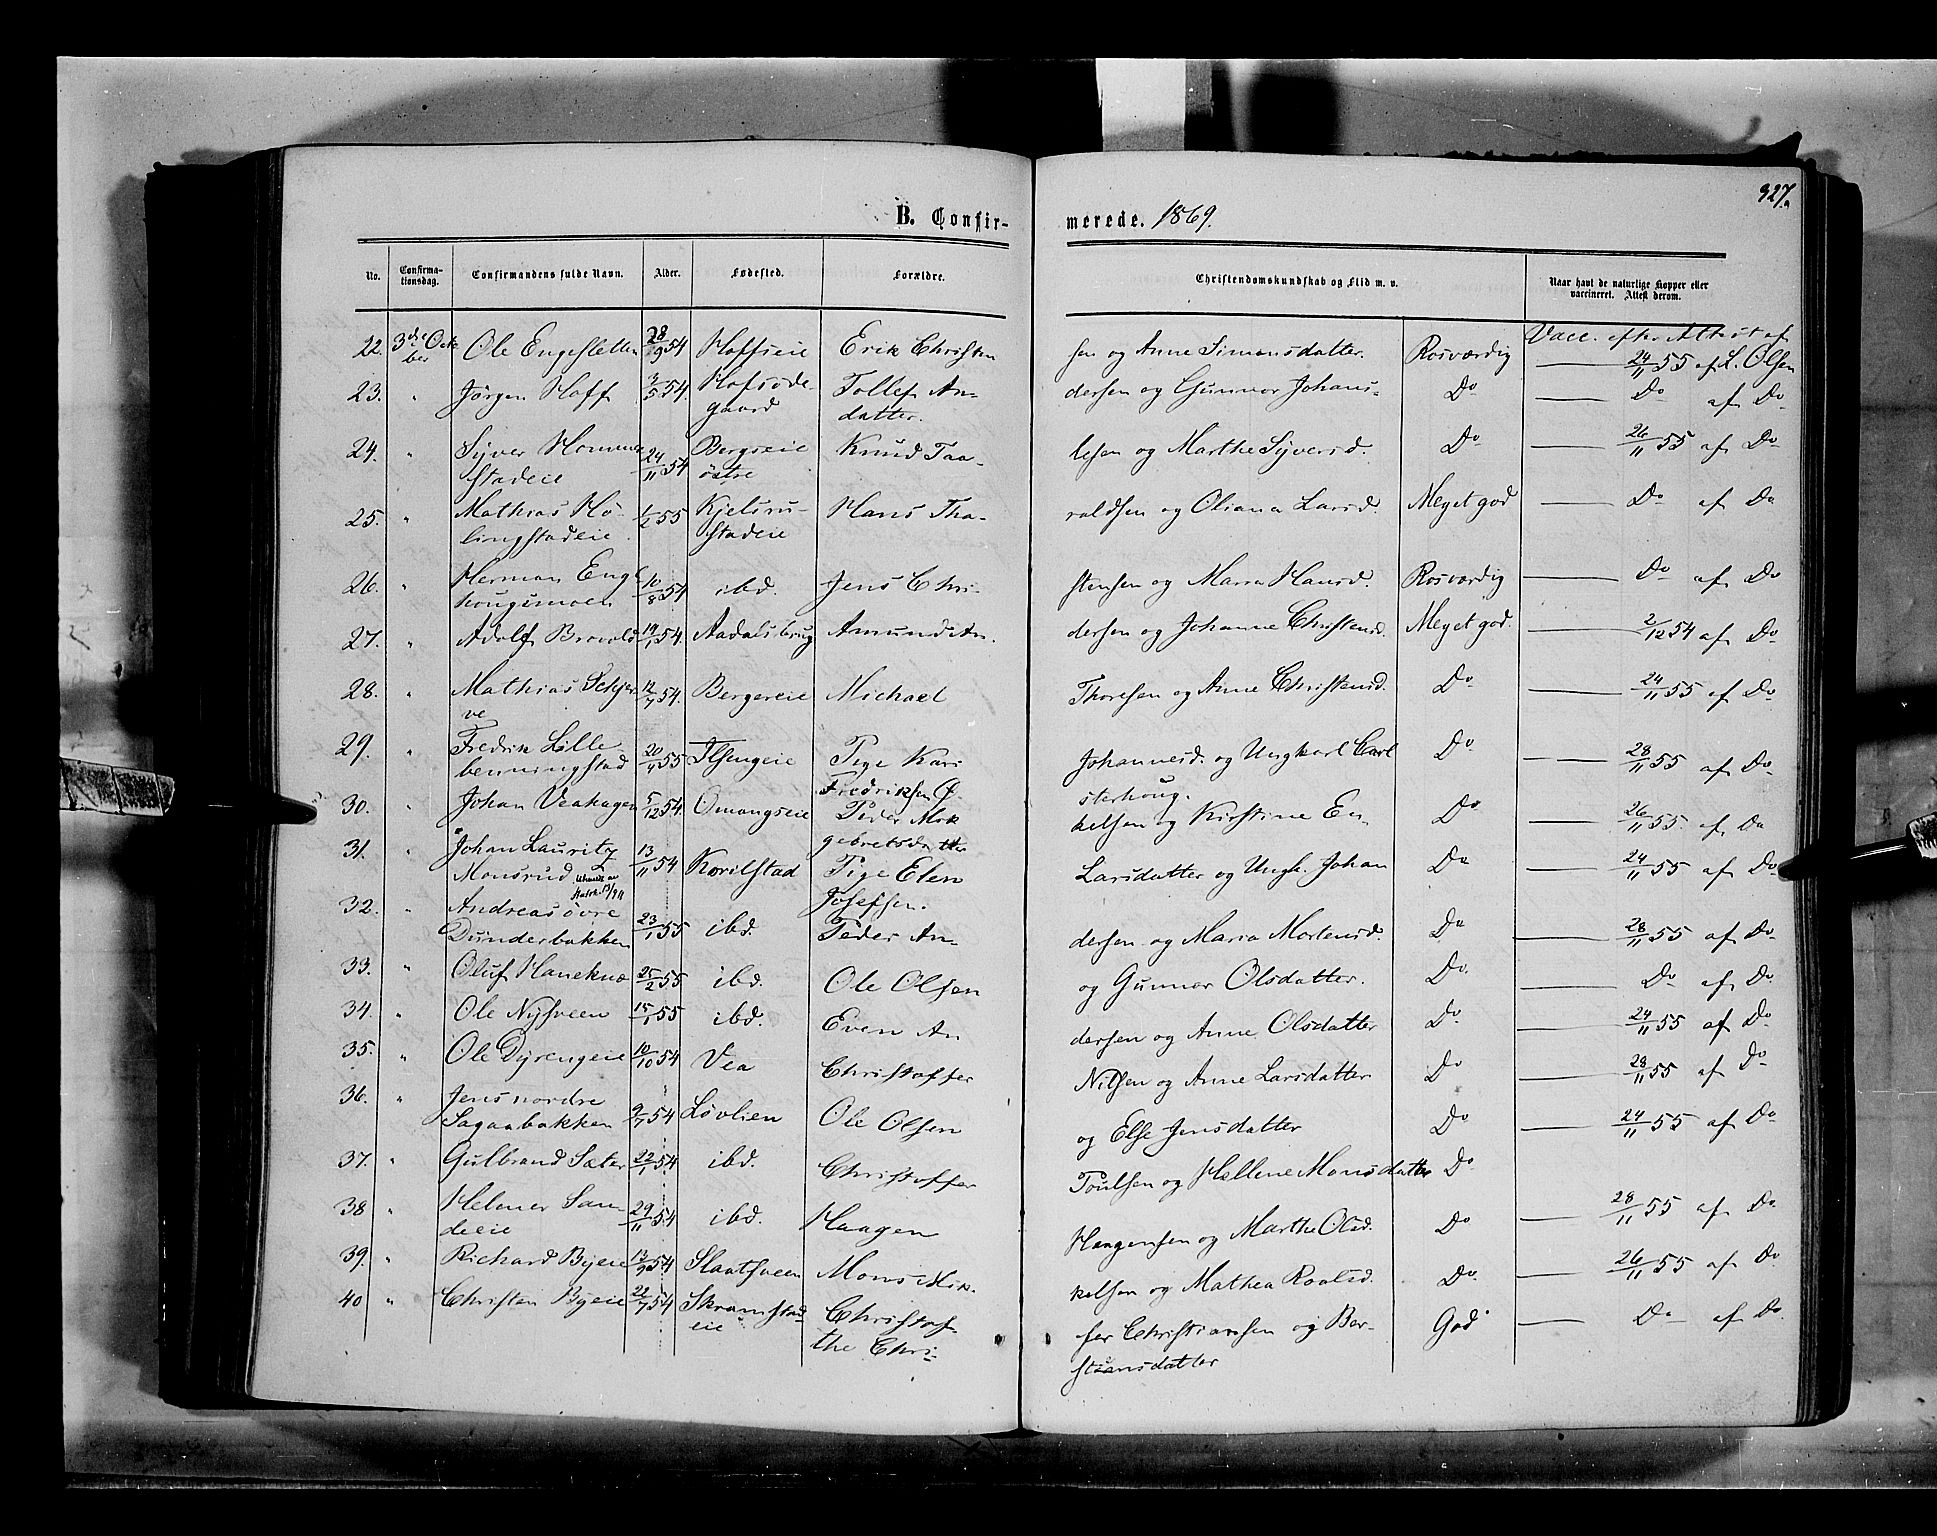 327.
B. Confir- merede. 1869.
No. Confirma-tionsdag. Confirmandens fulde Navn. Alder. Fødested. Forældre. Christendomskundskab og Flid m. v. Naar havt de naturlige Kopper eller vaccineret. Attest derom.
Vacc. efter Attest af
22. 3die Octbr Ole Engesletten 28/9 54 Hoffseie Erik Christen sen og Anne Simensdatter. Rosværdig — 24/11 55 af L. Olsen
23. " Jörgen Hoff 3/5 54. Hofsöde-gaard Tollef An- dersen og Gunnor Johans- datter. Do — Do af Do
24. " Syver Homme stadeie 24/11 54 Bergseie östre Knud Taa- lesen og Marthe Syversd. Do — 26/11 55 af Do
25. " Mathias Hö-lingstadeie 1/2 55 Kjelsru-stadeie Hans Tha- raldsen og Oliana Larsd. Meget god — Do af Do
26. " Herman Enge haugsmoen 10/8 54 ibd. Jens Chri- stensen og Maria Hansd. Rosværdig — Do af Do
27. " Adolf Brovold 54. Aadalsbrug Amund An. dersen og Johanne Christensd. Meget god. — 2/12 54 af Do
28. " Mathias Schjerve 12/7 54. Bergereie Michael Thoresen og Anne Christensd. Do — 24/11 55 af Do
29. " Fredrik Lille benningstad 20/4 55 Ilsengeie Pige Kari Johannesd. og Ungkarl Carl Fredriksen Ö- sterhoug. Do — 28/11 55 af Do
30. " Johan Veahagen 5/12 54. Omangseie Peder Mik kelsen og Kirstine En- gebretsdatter Do — 26/11 55. af Do
31. " Johan Lauritz Monsrud 13/11 54 Korilstad Pige Elen Larsdatter og Ungk. Johan Josefsen. Do — 24/11 55 af Do
32. " Andreas övre Dunderbakken 23/1 55 ibd. Peder An- dersen og Maria Mortensd. Do — 28/11 55 af Do
33. " Oluf Hanekna 25/2 55 ibd. Ole Olsen og Gunnor Olsdatter. Do — Do af Do
34. " Ole Nysveen 15/1 55 ibd. Even An dersen og Anne Olsdatter Do — 24/11 55 af Do
35. " Ole Dyrengeie 10/10 54 Vea Christoffer Nilsen og Anne Larsdatter Do — 28/11 55 af Do
36. " Jens nordre Sagaabakken 9/7 54 Lövlien Ole Olsen og Else Jensdatter Do — 24/11 55 af Do
37. " Gulbrand Sæter 22/1 54 ibd. Christoffer Poulsen og Hellene Monsdatter Do
38 " Helmer San deeie 29/11 54 ibd. Haagen Haagensen og Marthe Olsd. Do — 28/11 55 af Do
39. " Richard Byeie 13/9 54 Slaatsveen Mons Mik. kelsen og Mathea Roalsd. Do — 26/11 55 af Do
40 " Christian Byeie 22/7 54 Skramstad-eie Christof- fer Christiansen og Ber- the Chri- stiansdatter God — Do af Do